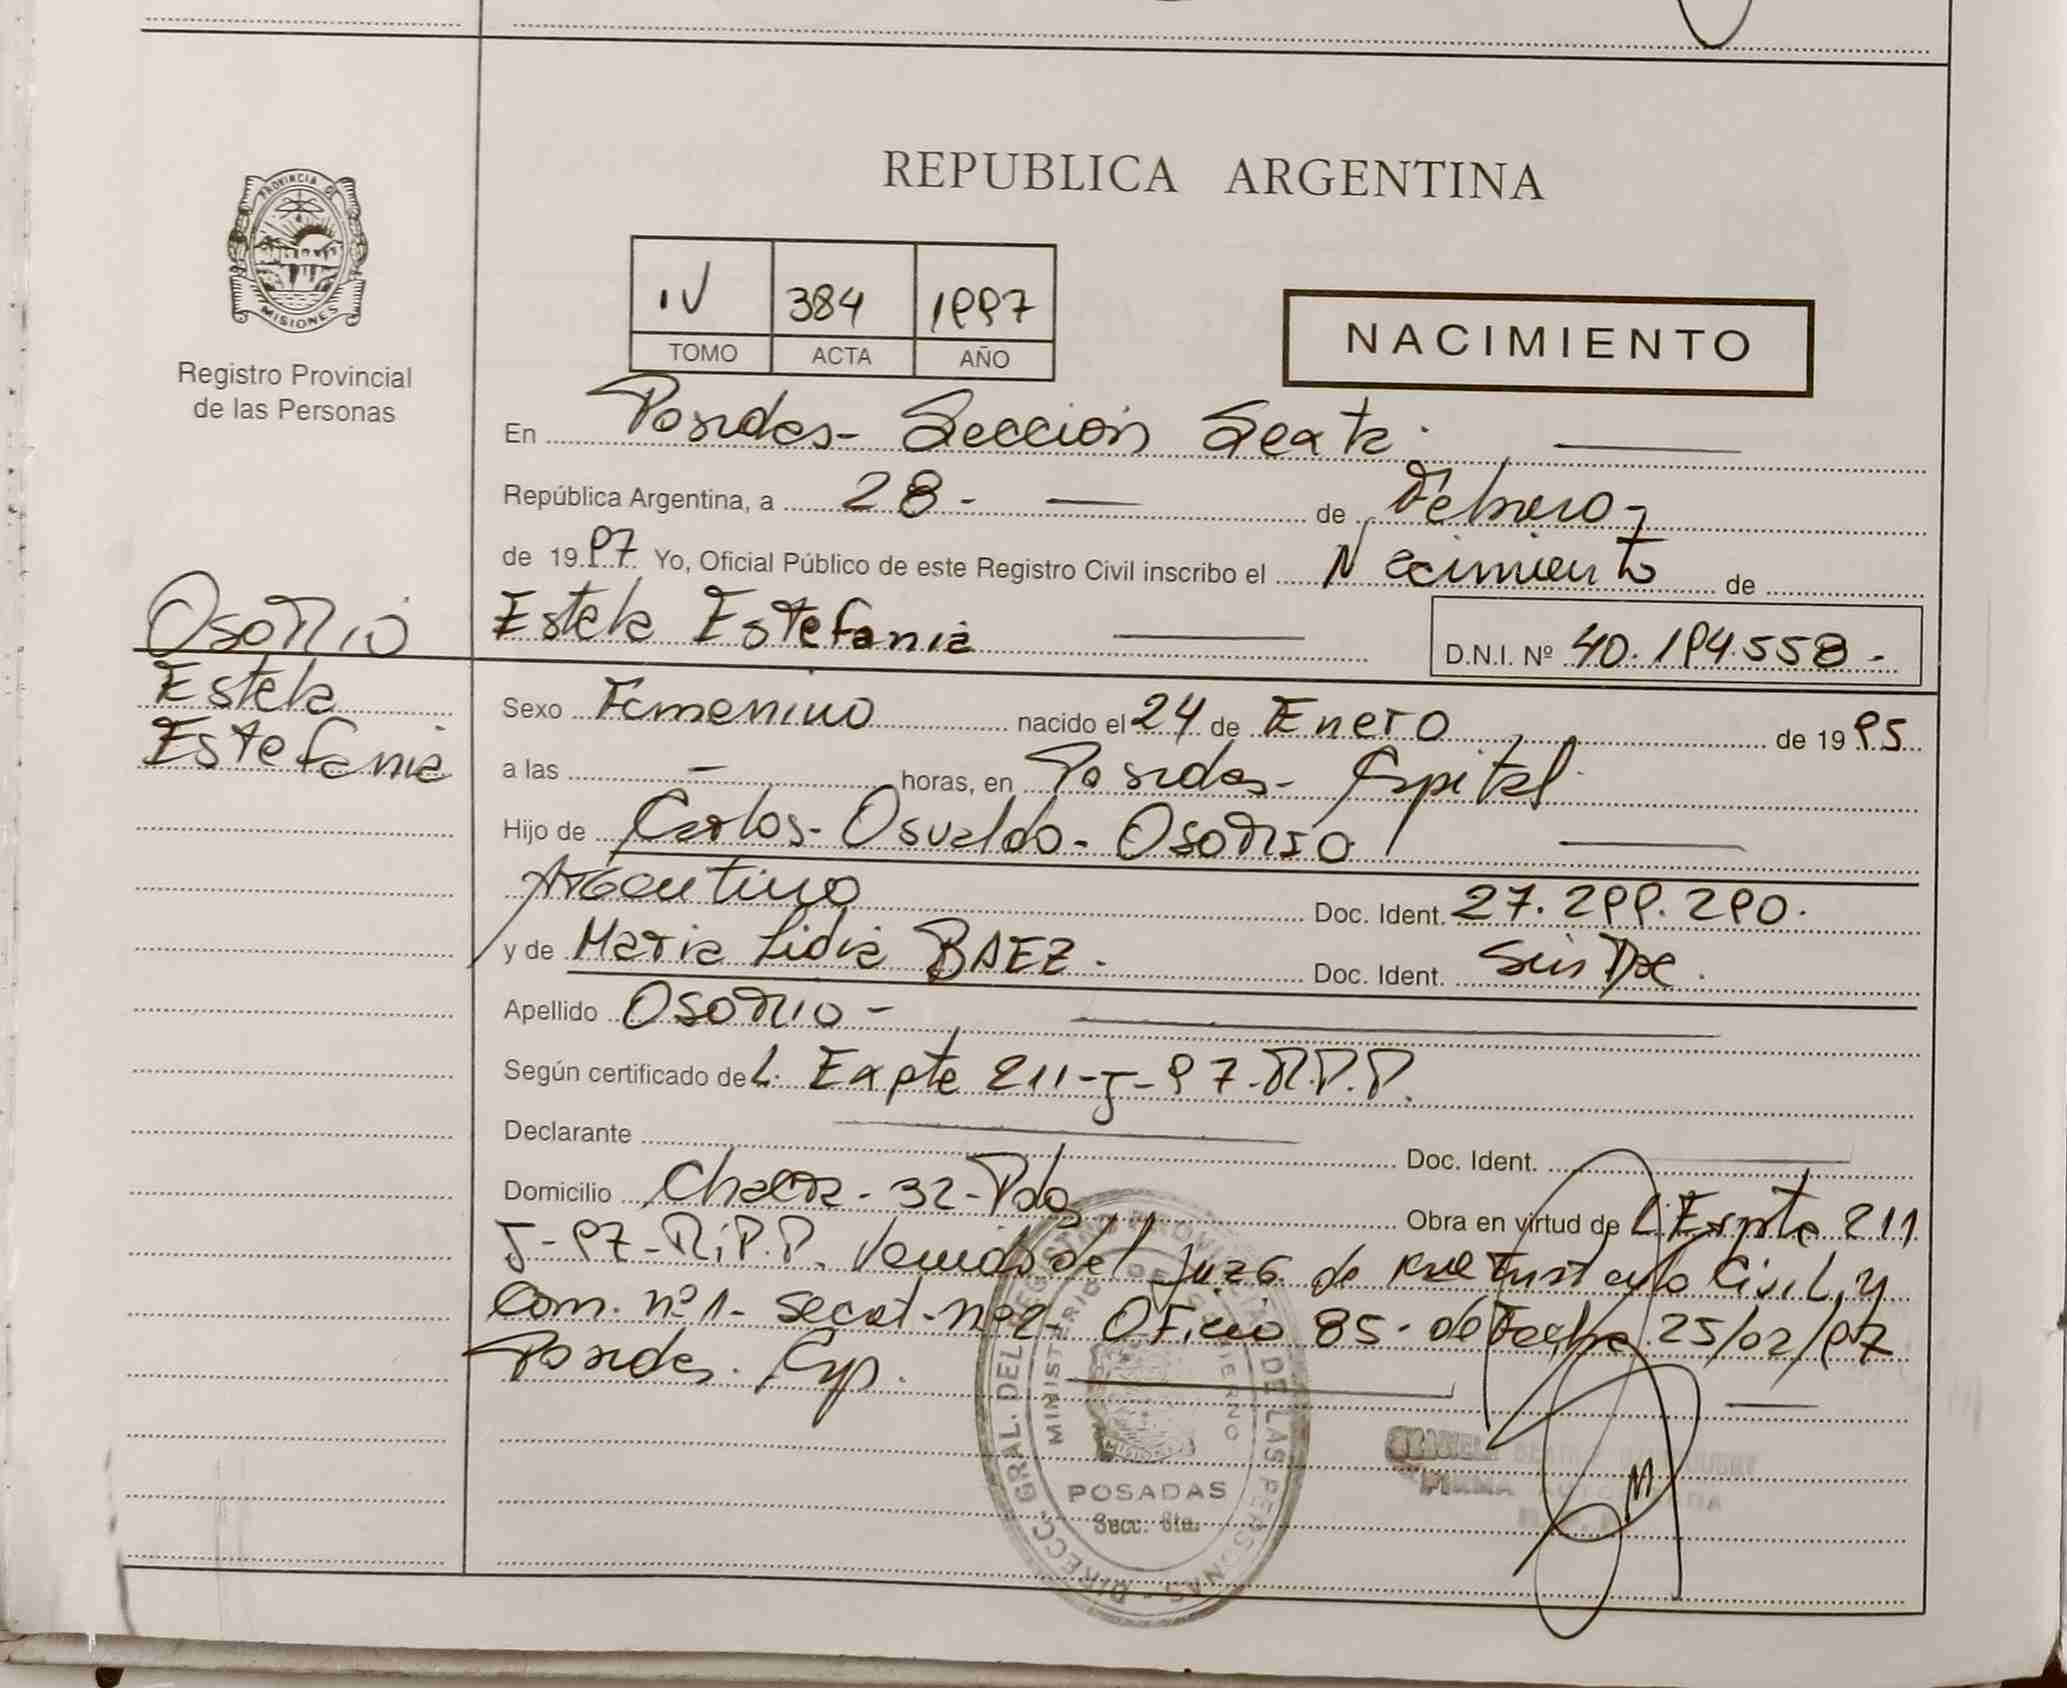 REPUBLICA ARGENTINA
PROVINCIA DE
MISIONES
Registro Provincial
de las Personas
IV 384 1997
TOMO ACTA AÑO
NACIMIENTO
En Posadas - Sección Sexta.
República Argentina, a 28 - de Febrero -
de 1997 Yo, Oficial Público de este Registro Civil inscribo el Nacimiento de
Estela Estefania
D.N.I. Nº 40.194.558 -
Osorio
Estela
Estefania
Sexo Femenino nacido el 24 de Enero de 1995
a las - horas, en Posadas - Capital.
Hijo de Carlos - Osvaldo - Osorio
Argentino Doc. Ident. 27.299.290.
y de Maria Lidia BAEZ. Doc. Ident. Sin Doc.
Apellido Osorio -
Según certificado de L. Expte 211-J-97-R.P.P.
Declarante Doc. Ident.
Domicilio Chacra - 32 - Pdas Obra en virtud de L. Expte 211
J-97-R.P.P. Venido del Juzg. de Civil y
Com. nº1 - Secret. nº2 - Oficio 85 - de Fecha 25/02/97
Posadas. Cap.
DIRECC. GRAL. DEL REGISTRO PROVINCIAL DE LAS PERSONAS
MINISTERIO DE GOBIERNO
MISIONES
POSADAS
Secc. 6ta.
FIRMA AUTORIZADA